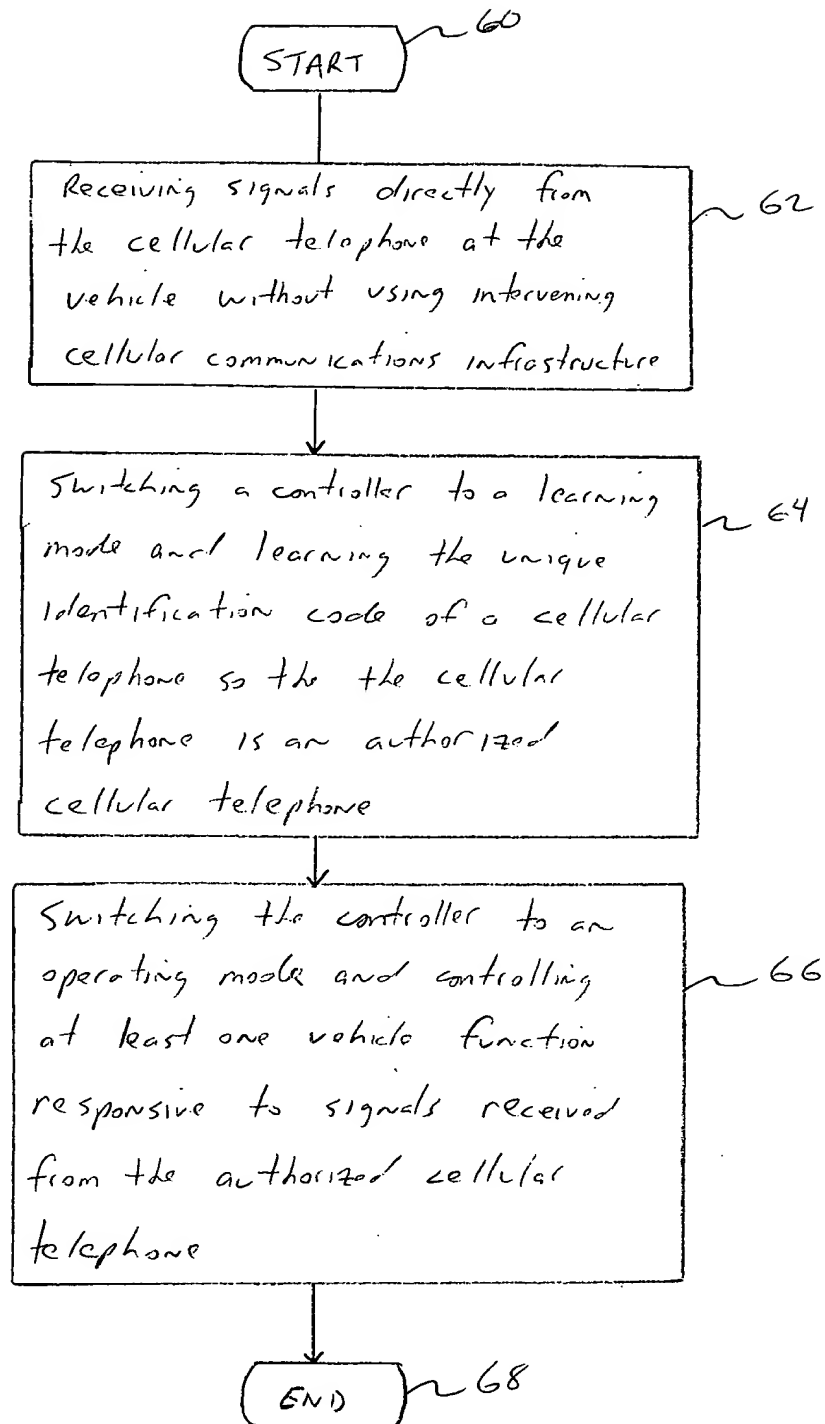 60
START
Receiving signals directly from
62
the cellular telephone at the
vehicle without using intervening
cellular communications infrastructure
Switching a controller to a learning
64
mode and learning the unique
identification code of a cellular
telephone so the the cellular
telephone is an authorized
cellular telephone
Switching the controller to an
operating mode and controlling
66
at least one vehicle function
responsive to signals received
from the authorized cellular
telephone
68
END